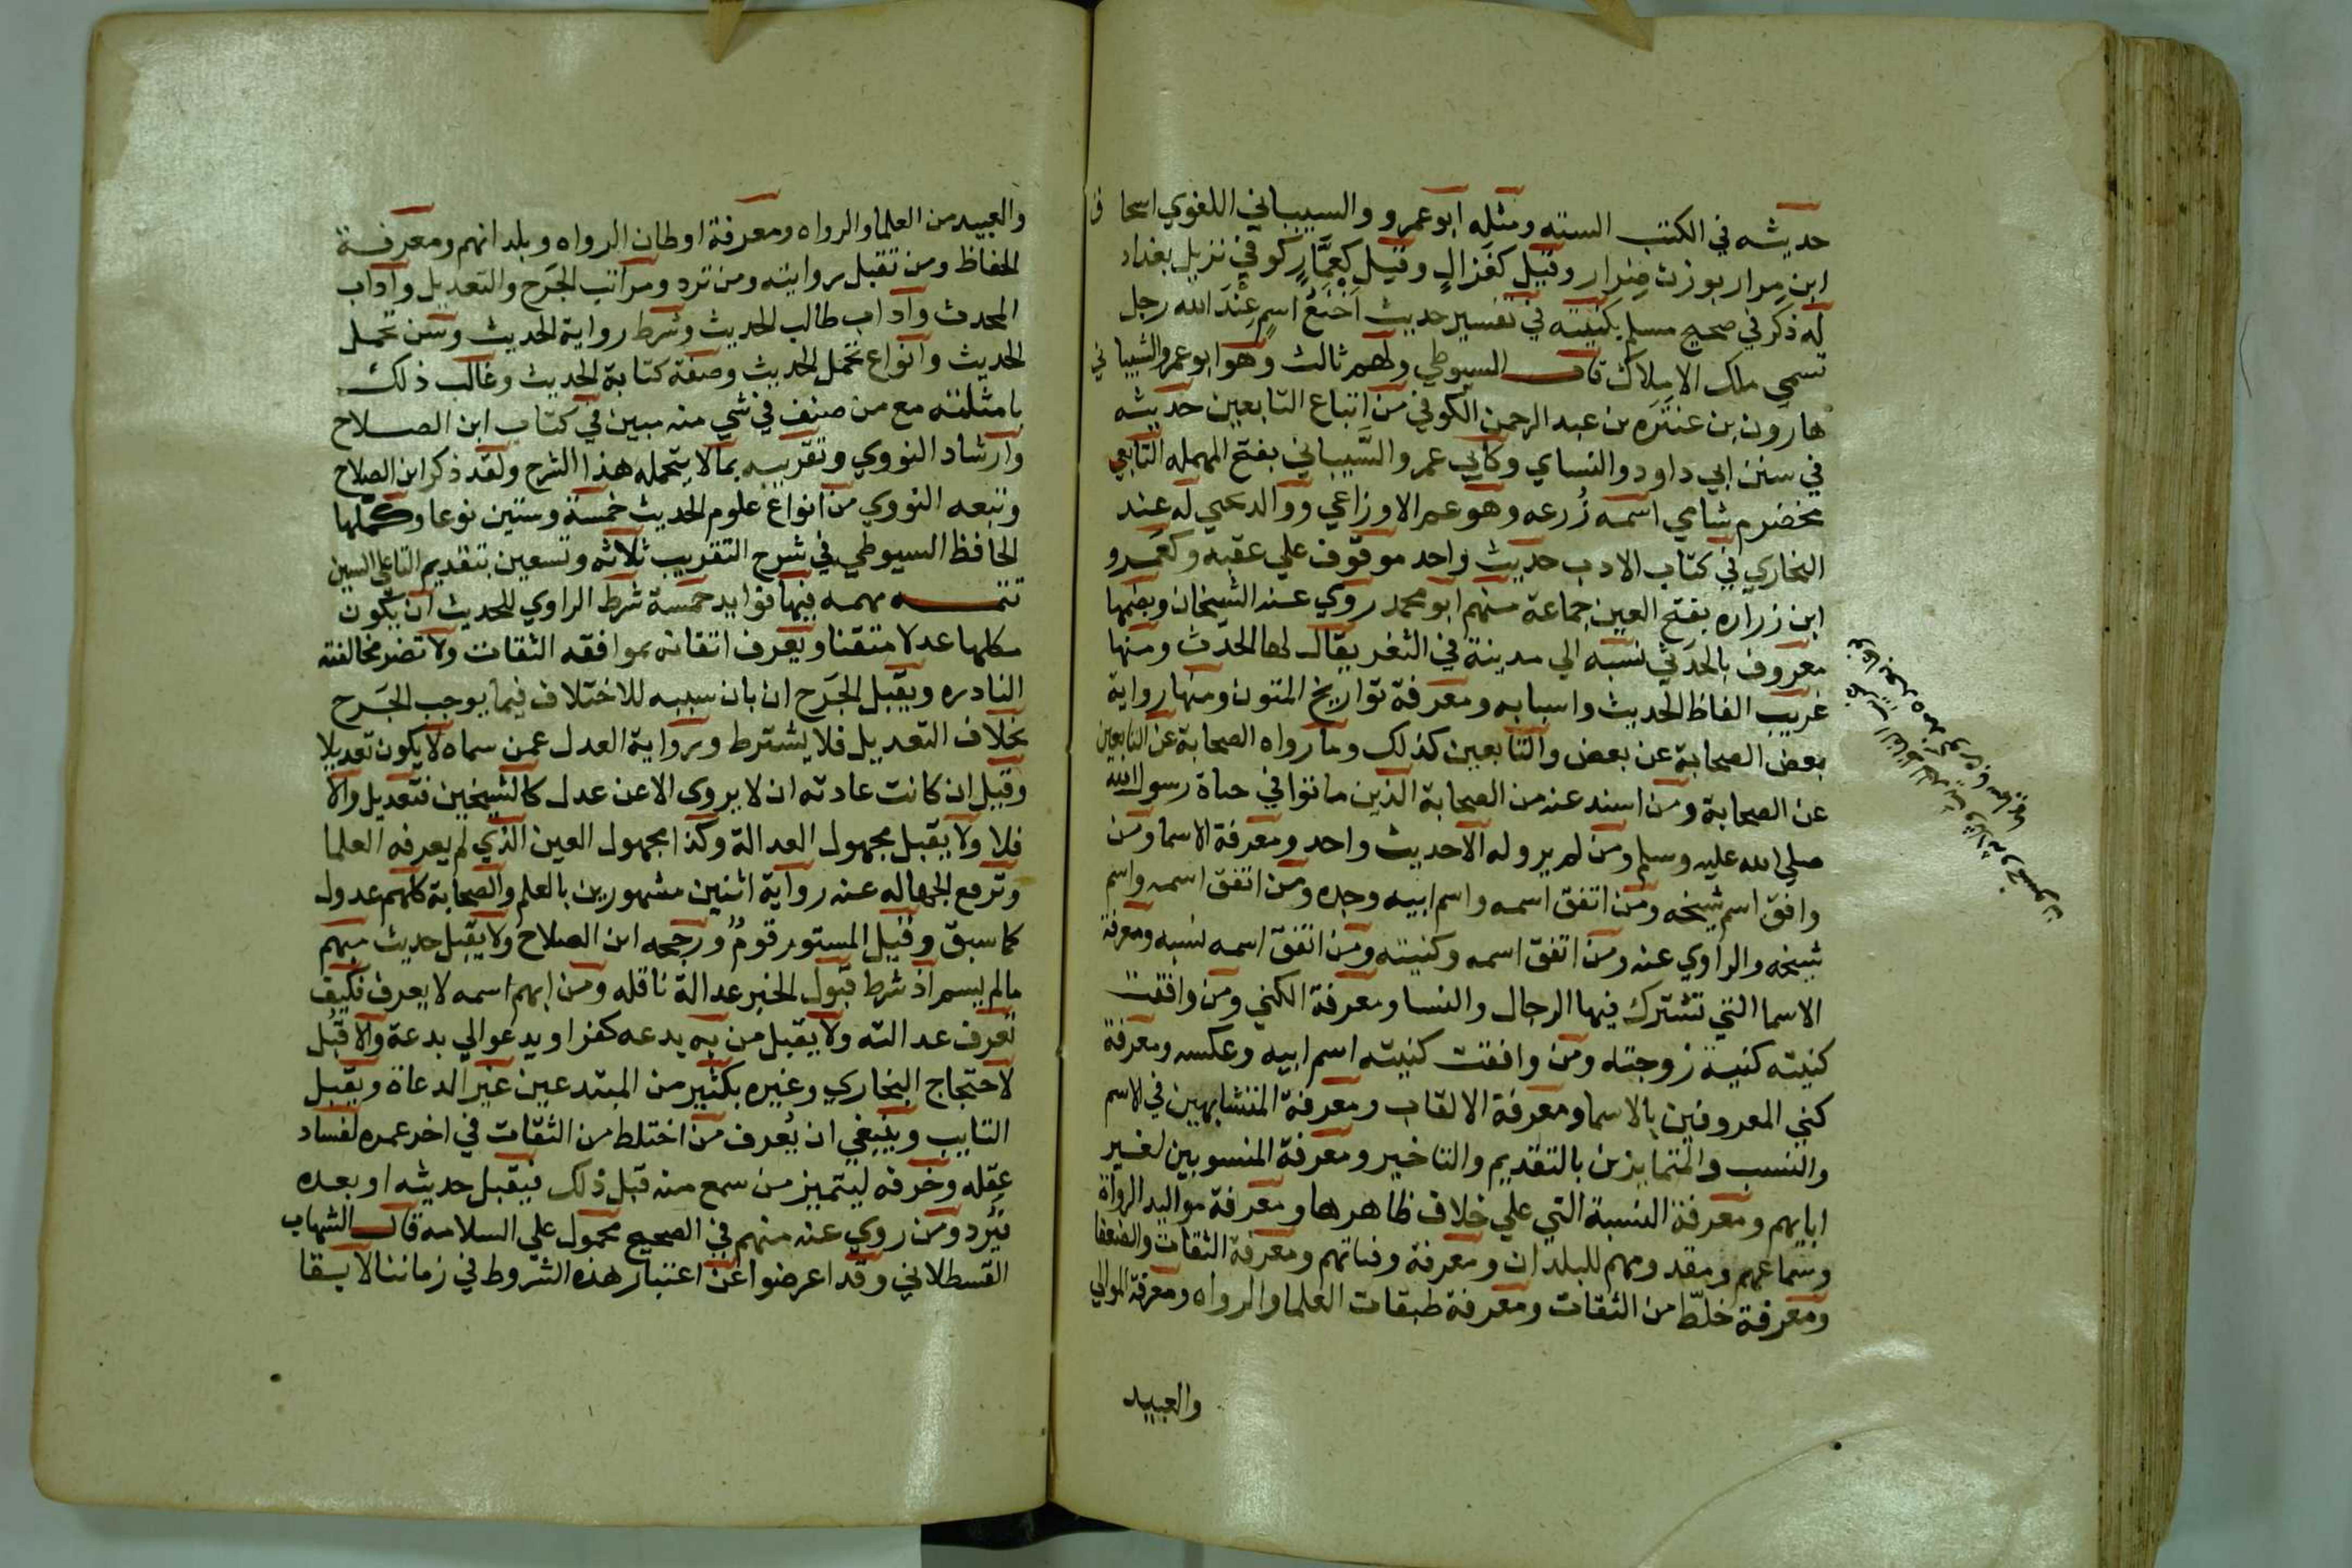 حديثه في الكتب الستة ومثله ابو عمرو والسيباني اللغوي اسحاق
ابن مرار بوزن ضرار وقيل كغزال وقيل كعمار كوفي نزيل بغداد
له ذكر في صحيح مسلم بكنيته في تفسير حديث اخنع اسم عند الله رجل
تسمي ملك الاملاك قال السيوطي ولهم ثالث وهو ابو عمرو الشيباني
هارون بن عنتره بن عبد الرحمن الكوفي من اتباع التابعين حديثه
في سنن ابي داود والنساي وكابي عمرو السيباني بفتح المهمله التابعي
مخضرم شامي اسمه زرعه وهو عم الاوزاعي ووالد يحيي له عند
البخاري في كتاب الادب حديث واحد موقوف علي عقبه وكعمرو
ابن زراره بفتح العين جماعة منهم ابو محمد روي عنه الشيخان وبضمها
معروف بالحدثي نسبه الي مدينة في الثغر يقال لها الحدث ومنها
غريب الفاظ الحديث واسبابه ومعرفة تواريخ المتون ومنها رواية
بعض الصحابة عن بعض والتابعين كذلك وما رواه الصحابة عن التابعين
عن الصحابة ومن اسند عنه من الصحابة الذين ماتوا في حياة رسول الله
صلي الله عليه وسلم ومن لم يرو له الا حديث واحد ومعرفة الاسما ومن
وافق اسم شيخه ومن اتفق اسمه واسم ابيه وجده ومن اتفق اسمه واسم
شيخه والراوي عنه ومن اتفق اسمه وكنيته ومن اتفق اسمه نسبه ومعرفة
الاسما التي تشترك فيها الرجال والنسا ومعرفة الكني ومن وافقت
كنيته كنية زوجته ومن وافقت كنيته اسم ابيه وعكسه ومعرفة
كني المعروفين بالاسما ومعرفة الالقاب ومعرفة المتشابهين في الاسم
والنسب والمتمايزين بالتقديم والتاخير ومعرفة المنسوبين لغير
ابايهم ومعرفة النسبة التي علي خلاف ظاهرها ومعرفة مواليد الرواة
وسماعهم ومقدومهم للبلدان ومعرفة وفياتهم ومعرفة الثقات والضعفا
ومعرفة خلط من الثقات ومعرفة طبقات العلما والرواه ومعرفة الموالي
والعبيد
والعبيد من العلما والرواه ومعرفة اوطان الرواه وبلدانهم ومعرفة
الحفاظ ومن تقبل روايته ومن ترد ومراتب الجرح والتعديل واداب
المحدث واداب طالب الحديث وشرط رواية الحديث وسن تحمل
الحديث وانواع تحمل الحديث وصفة كتابة الحديث وغالب ذلك
بامثلته مع من صنف في شي منه مبين في كتاب ابن الصلاح
وارشاد النووي وتقريبه بما لا يتحمله هذا الشرح ولقد ذكر ابن الصلاح
وتبعه النووي من انواع علوم الحديث خمسة وستين نوعا وكملها
الحافظ السيوطي في شرح التقريب ثلاثه وتسعين بتقديم التا علي السين
تتمـه مهمه فيها فوايد خمسة شرط الراوي للحديث ان يكون
مكلفا عدلا متقنا ويعرف اتقانه بموافقه الثقات ولا تضر مخالفته
النادره ويقبل الجرح ان بان سببه للاختلاف فيما يوجب الجرح
بخلاف التعديل فلا يشترط ورواية العدل عمن سماه لا يكون تعديلا
وقيل ان كانت عادته ان لا يروى الا عن عدل كالشيخين فتعديل والا
فلا ولا يقبل مجهول العدالة وكذا مجهول العين الذي لم يعرفه العلما
وترفع الجهاله عنه رواية اثنين مشهورين بالعلم والصحابة كلهم عدول
كما سبق وقيل المستور قوم ورجحه ابن الصلاح ولا يقبل حديث مبهم
مالم يسم اذ شرط قبول الخبر عدالة ناقله ومن ابهم اسمه لا يعرف فكيف
تعرف عدالته ولا يقبل من به بدعه كفر او يدعو الي بدعة والا قبل
لاحتجاج البخاري وغيره بكثير من المبتدعين غير الدعاة ويقبل
التايب وينبغي ان يعرف من اختلط من الثقات في اخر عمره لفساد
عقله وخرفه ليتميز من سمع منه قبل ذلك فيقبل حديثه او بعده
فيرد ومن روي عنه منهم في الصحيح محمول علي السلامه قال الشهاب
القسطلاني وقد اعرضوا عن اعتبار هذه الشروط في زماننا لابقا